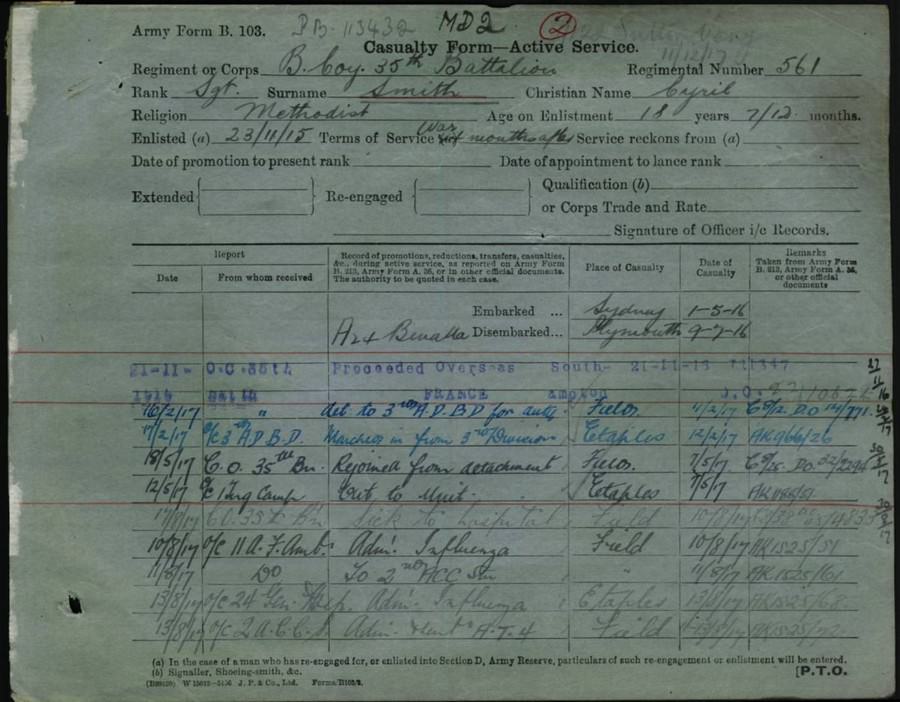 Army Form B. 103. PB. 113432 MD2 2
11/12/17
Casualty Form—Active Service.
Regiment or Corps B. Coy. 35th Battalion Regimental Number 561
Rank Sgt. Surname Smith Christian Name Cyril
Religion Methodist Age on Enlistment 18 years 7/12 months.
Enlisted (a) 23/11/15 Terms of Service War months after Service reckons from (a)
Date of promotion to present rank Date of appointment to lance rank
Extended Re-engaged Qualification (b)
or Corps Trade and Rate
Signature of Officer i/c Records.
Report Record of promotions, reductions, transfers, casualties, &c., during active service, as reported on Army Form B. 213, Army Form A. 36, or in other official documents. The authority to be quoted in each case. Place of Casualty Date of Casualty Remarks Taken from Army Form B. 213, Army Form A. 36, or other official documents
Date From whom received
Embarked ... Sydney 1-5-16
A24 Benalla Disembarked... Plymouth 9-7-16
21-11- O.C. 35th Proceeded Overseas South- 21-11-16
1916 FRANCE ampton
16/2/17 " det. to 3rd A.D.B.D for Field
17/2/17 o/c 3rd A.D.B.D. Marched in from 3rd Division Etaples 12/2/17 AK966/26
18/5/17 C.O. 35th Bn. Rejoined from detachment Field 7/5/17
12/5/17 o/c Trg Camp Out to Unit. Etaples 7/5/17
CO. 35th Bn Sick to hospital Field 10/8/17
10/8/17 o/c 11 A. F. Amb. Adm. Influenza Field 10/8/17 AK1525/51
11/8/17 Do To 2nd ACC Stn " 11/8/17 AK1525/61
13/8/17 o/c 24 Gen. Hosp. Adm. Influenza Etaples 13/8/17 AK1525/68
13/8/17 o/c 2 A.C.C.S Adm. A.T.4 Field
(a) In the case of a man who has re-engaged for, or enlisted into Section D, Army Reserve, particulars of such re-engagement or enlistment will be entered.
(b) Signaller, Shoeing-smith, &c. [P.T.O.
J. P. & Co., Ltd.